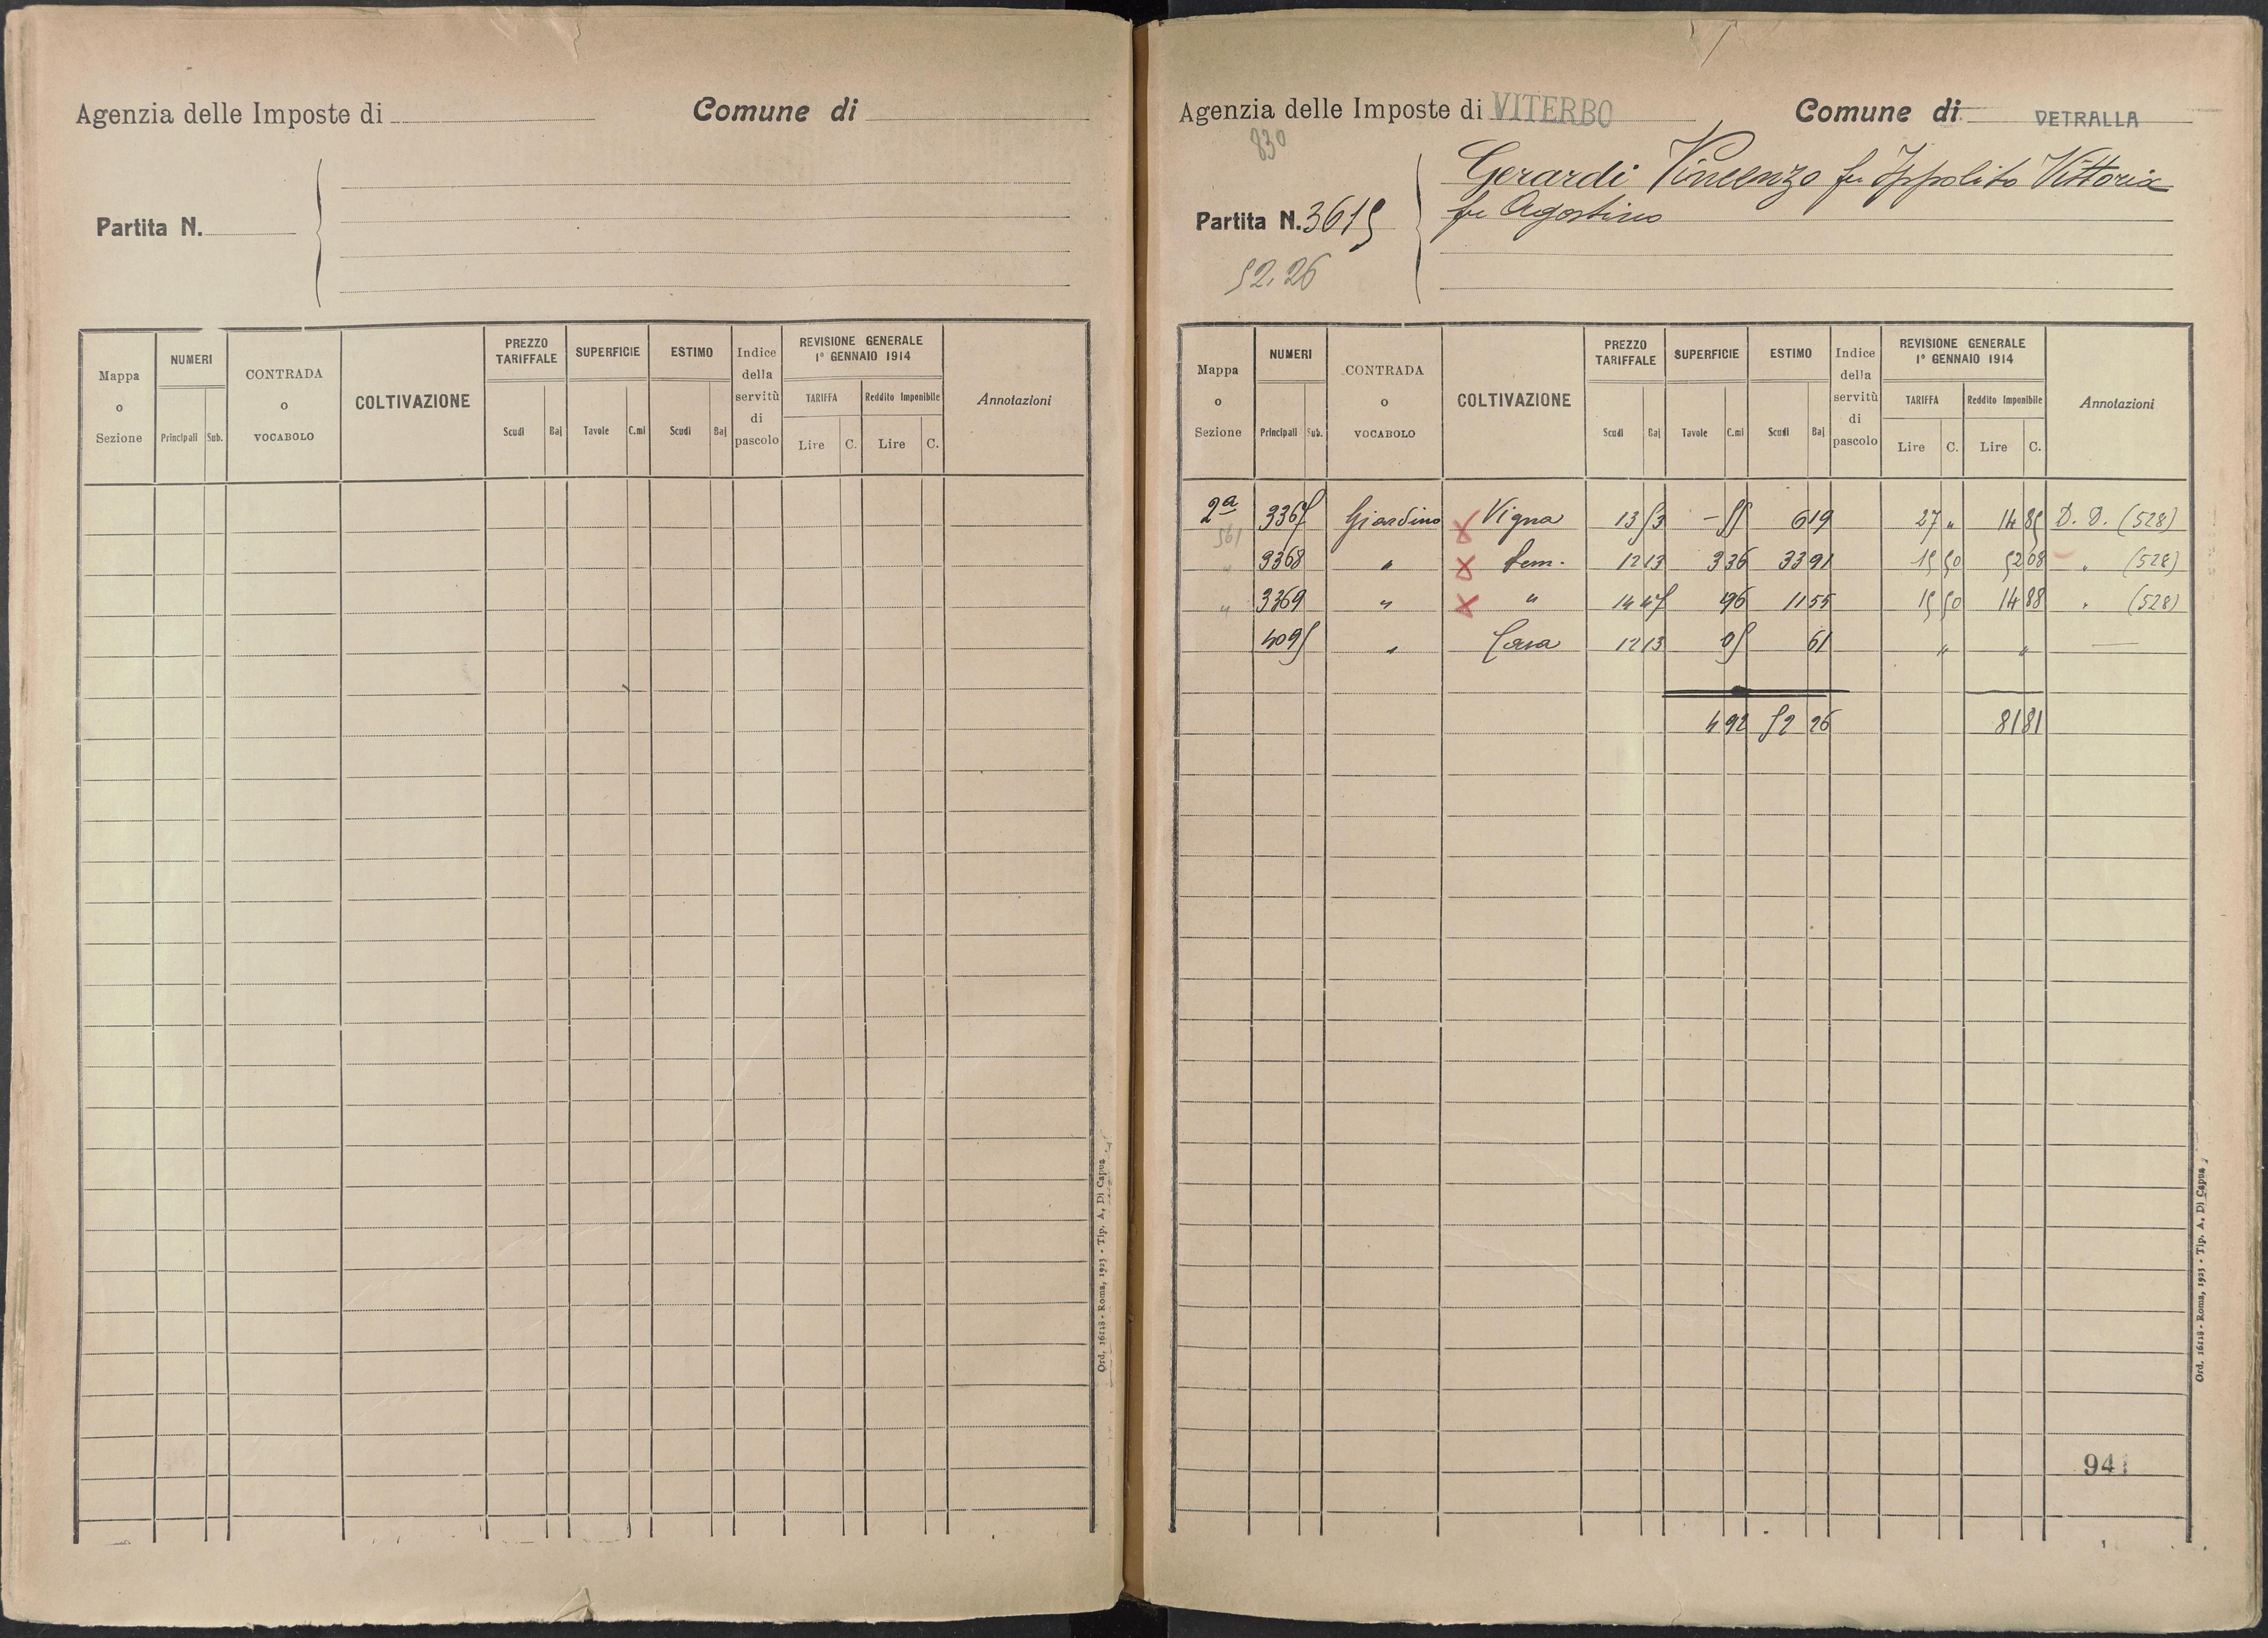 Agenzia delle Imposte di
Comune di
Partita N.
Mappa o Sezione
NUMERI
Principali Sub.
CONTRADA o VOCABOLO
COLTIVAZIONE
PREZZO TARIFFALE
Scudi Baj
SUPERFICIE
Tavole C.mi
ESTIMO
Scudi Baj
Indice della servitù di pascolo
REVISIONE GENERALE
1° GENNAIO 1914
TARIFFA Reddito Imponibile
Lire C. Lire C.
Annotazioni
Ord. 16118 - Roma, 1923 - Tip. A. Di Capua
Agenzia delle Imposte di VITERBO
Comune di VETRALLA
830
Gerardi Vincenzo fu Ippolito Vittoria
fu Agostino
Partita N. 3615
52.26
Mappa o Sezione
NUMERI
Principali Sub.
CONTRADA o VOCABOLO
COLTIVAZIONE
PREZZO TARIFFALE
Scudi Baj
SUPERFICIE
Tavole C.mi
ESTIMO
Scudi Baj
Indice della servitù di pascolo
REVISIONE GENERALE
1° GENNAIO 1914
TARIFFA Reddito Imponibile
Lire C. Lire C.
Annotazioni
2ª 3367 Giardino x Vigna 13 53 - 55 6 19 27 " 14 85 D. D. (528)
561
" 3368 " x Sem. 12 13 3 36 33 91 15 50 52 08 " (528)
" 3369 " x " 14 47 96 11 55 15 50 14 88 " (528)
4095 " Casa 12 13 05 61 " " —
4 92 52 26 81 81
941
Ord. 16118 - Roma, 1923 - Tip. A. Di Capua